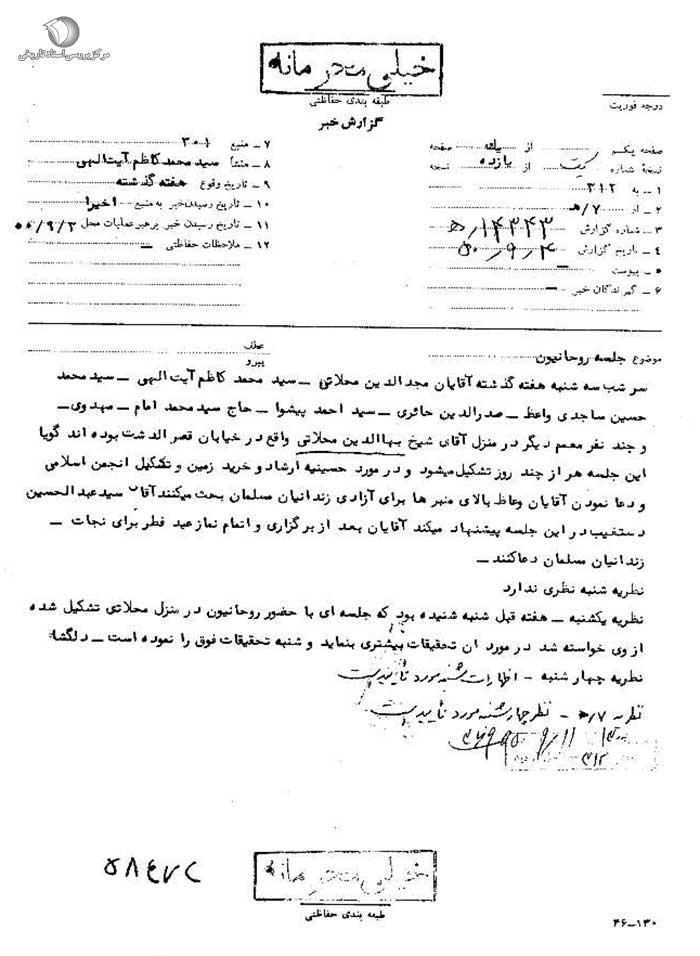 مرکز بررسی اسناد تاریخی
خیلی محرمانه
طبقه بندی حفاظتی
گزارش خبر
درجه فوریت
صفحه یکم از یک صفحه
نسخه شماره یک از یازده نسخه
۱ ـ به ۳۱۲
۲ ـ از ۷/ه
۳ ـ شماره گزارش ۱۴۳۴۳/ه
۴ ـ تاریخ گزارش ۵۰/۹/۴
۵ ـ پیوست ـ
۶ ـ گیرندگان خبر ـ
۷ ـ منبع ۳۰۱
۸ ـ منشأ سید محمد کاظم آیت الهی
۹ ـ تاریخ وقوع هفته گذشته
۱۰ ـ تاریخ رسیدن خبر به منبع اخیرا
۱۱ ـ تاریخ رسیدن خبر برهبر عملیات محل ۵۰/۹/۳
۱۲ ـ ملاحظات حفاظتی ـ
موضوع جلسه روحانیون
عطف
پیرو
سر شب سه شنبه هفته گذشته آقایان مجد الدین محلاتی ـ سید محمد کاظم آیت الهی ـ سید محمد
حسین ساجدی واعظ ـ صدرالدین حائری ـ سید احمد پیشوا ـ حاج سید محمد امام ـ مهدوی ـ
و چند نفر معمم دیگر در منزل آقای شیخ بهاالدین محلاتی واقع در خیابان قصر الدشت بوده اند گویا
این جلسه هر از چند روز تشکیل میشود و در مورد حسینیه ارشاد و خرید زمین و تشکیل انجمن اسلامی
و دعا نمودن آقایان وعاظ بالای منبر ها برای آزادی زندانیان مسلمان بحث میکنند آقای سید عبدالحسین
دستغیب در این جلسه پیشنهاد میکند آقایان بعد از برگزاری و اتمام نماز عید فطر برای نجات ـ
زندانیان مسلمان دعا کنند ـ
نظریه شنبه نظری ندارد
نظریه یکشنبه ـ هفته قبل شنبه شنیده بود که جلسه ای با حضور روحانیون در منزل محلاتی تشکیل شده
از وی خواسته شد در مورد آن تحقیقات بیشتری بنماید و شنبه تحقیقات فوق را نموده است ـ دلگشا
نظریه چهار شنبه ـ اظهارات شنبه مورد تأیید است
نظریه ۷/ه ـ نظر چهارشنبه مورد تأیید است
۳۱۲
خیلی محرمانه
طبقه بندی حفاظتی
۴۶ـ۱۳۰